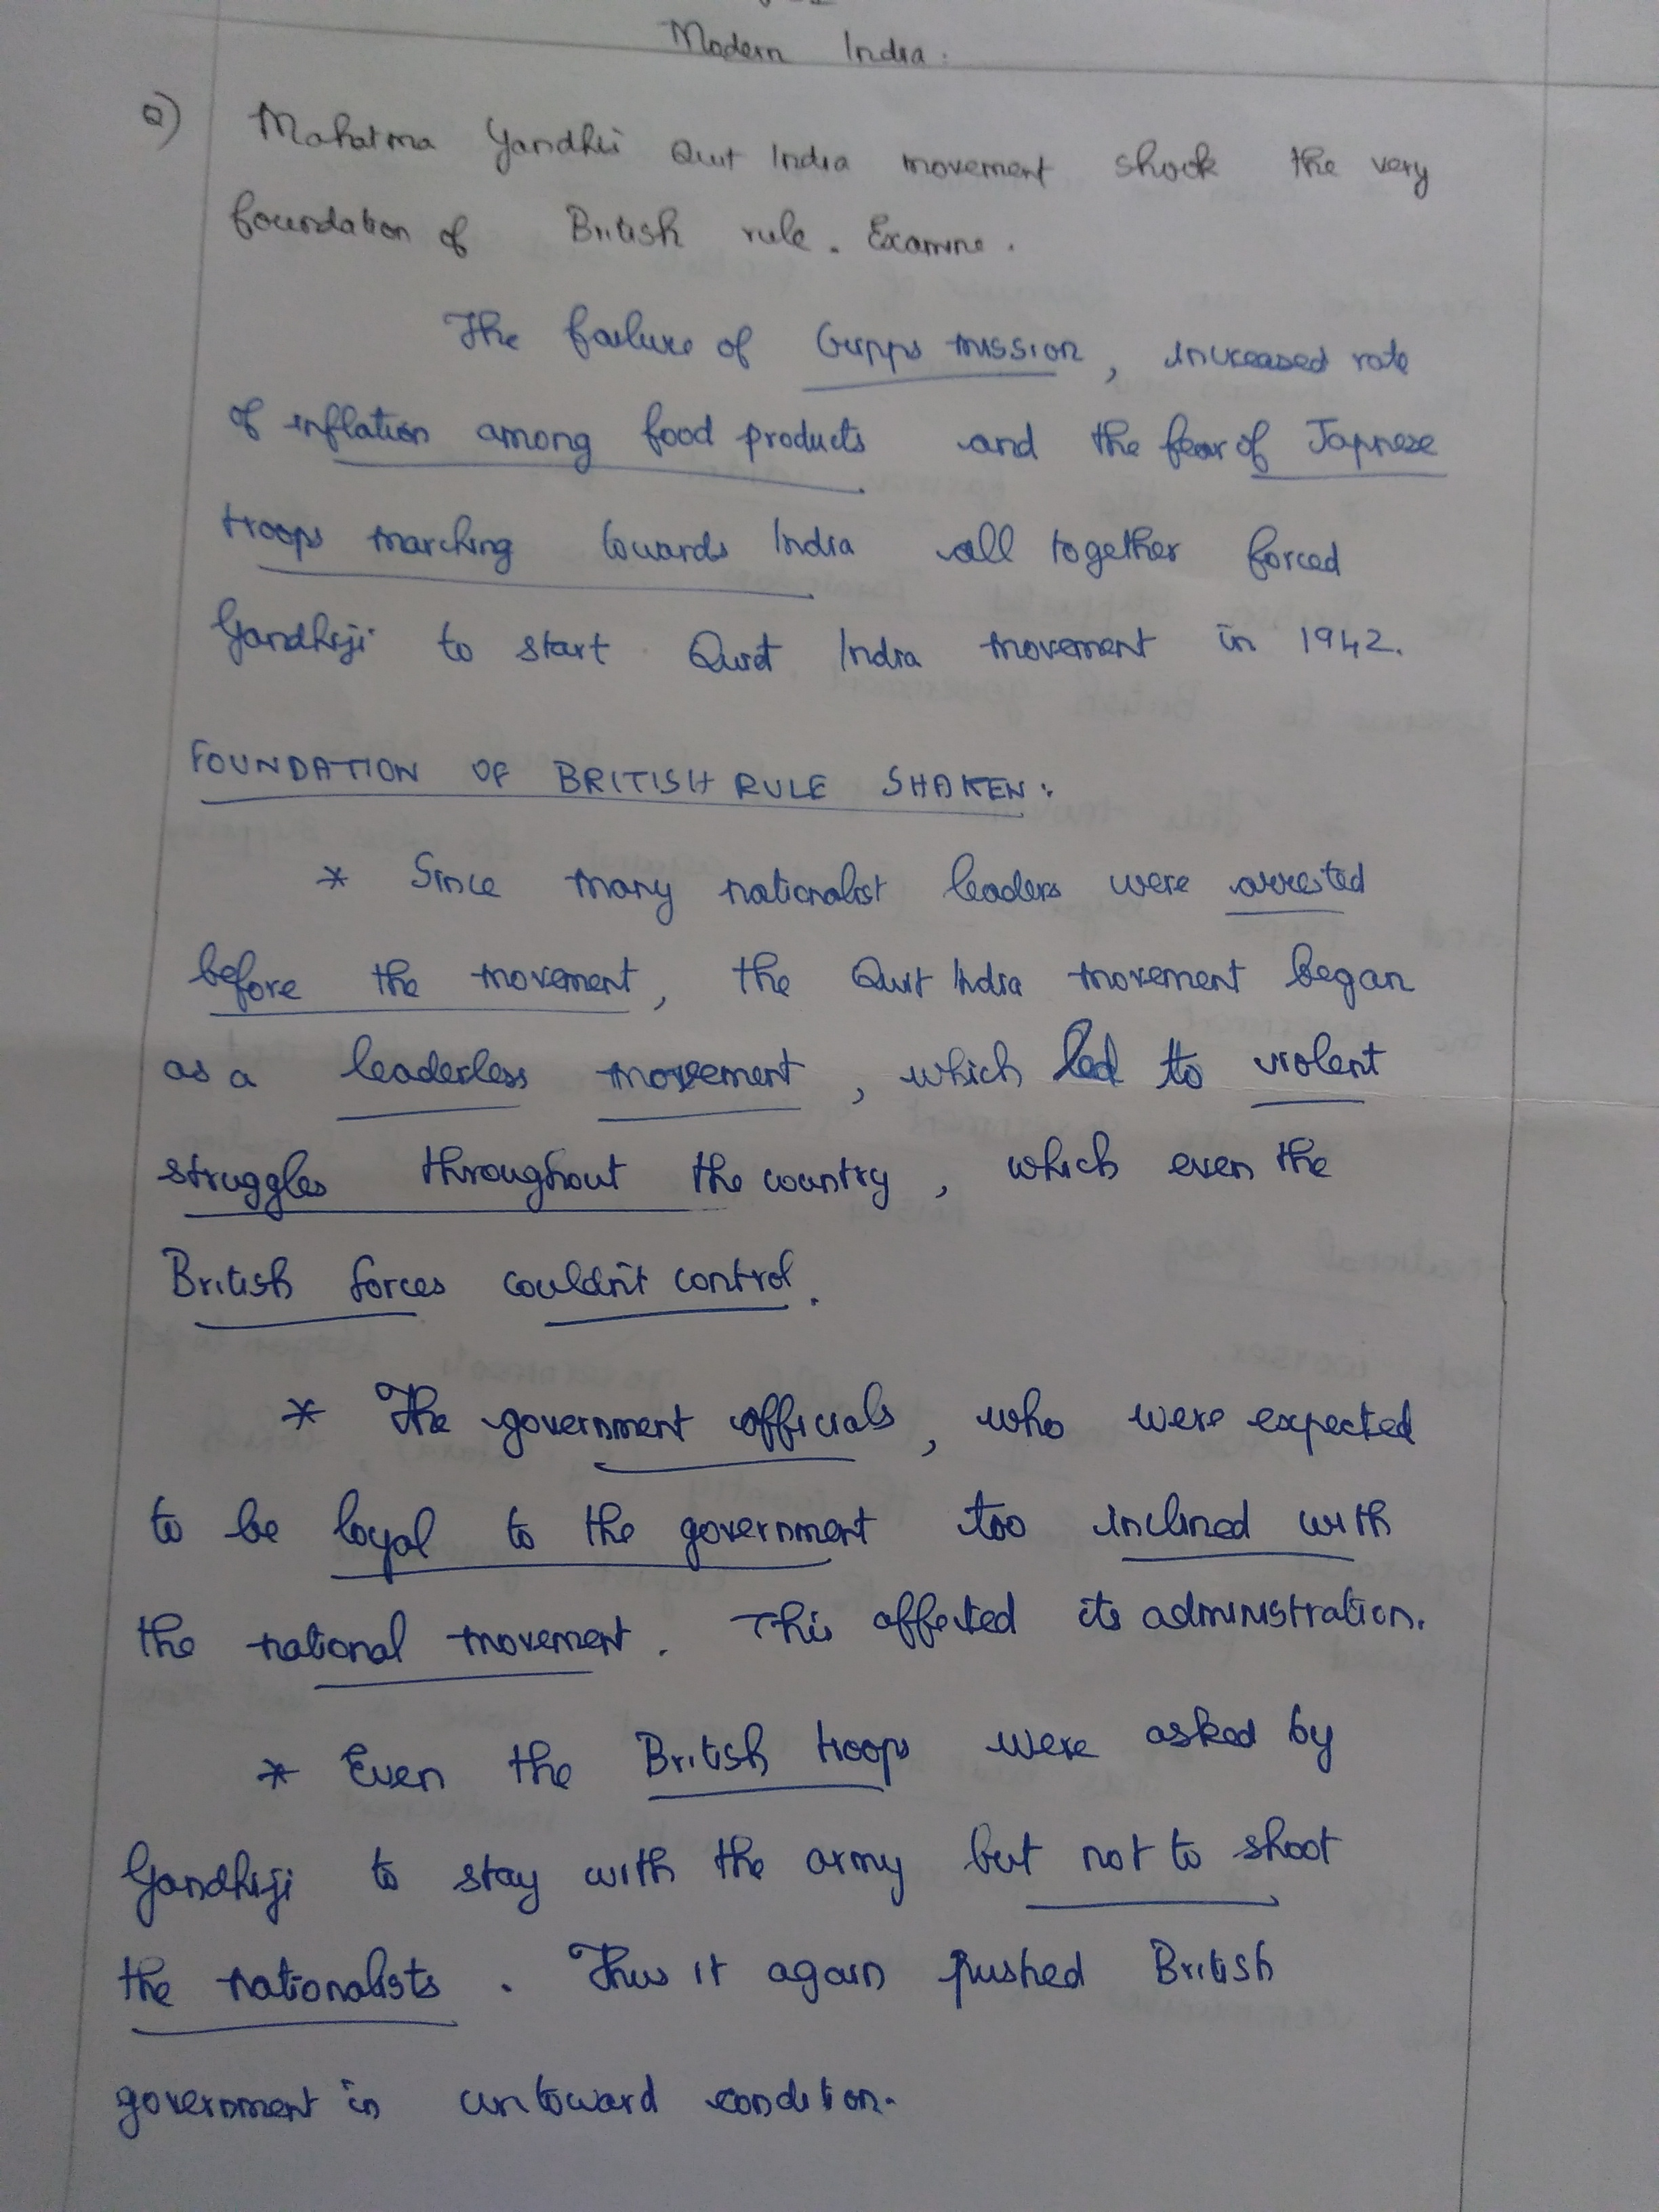 Modern India.
Q) Mahatma Gandhi Quit India movement shook the very
foundation of British rule. Examine.
The failure of Cripps mission, increased rate
of inflation among food products and the fear of Japnese
troops marching towards India all together forced
Gandhiji to start Quit India movement in 1942.
FOUNDATION OF BRITISH RULE SHAKEN:
* Since many nationalist leaders were arrested
before the movement, the Quit India movement began
as a leaderless movement, which led to violent
struggles throughout the country, which even the
British forces couldn't control.
* The government officials, who were expected
to be loyal to the government too inclined with
the national movement. This affected its administration.
* Even the British troops were asked by
Gandhiji to stay with the army but not to shoot
the nationalists. Thus it again pushed British
government in untoward condition.